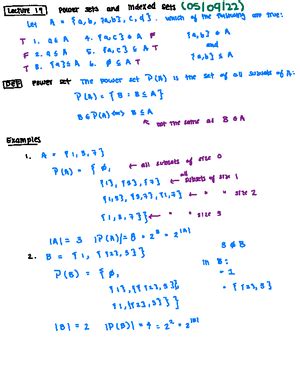 Lecture 19 Power sets and Indexed Sets (05/09/22)
Let A = {a, b, {a,b}, c, d}. which of the following are true:
T 1. a ∈ A 4. {a,c} ∈ A F {a,b} ∈ A
F 2. a ⊆ A 5. {a,c} ⊆ A T and
T 3. {a} ⊆ A 6. ∅ ⊆ A T {a,b} ⊆ A
Def Power set The power set P(A) is the set of all subsets of A:
P(A) = {B : B ⊆ A}
B ∈ P(A) ⟺ B ⊆ A
not the same as B ∈ A
Examples
1. A = {1, 5, 7}
P(A) = { ∅, ← all subsets of size 0
{1}, {5}, {7} ← all subsets of size 1
{1,5}, {5,7}, {1,7} ← " " size 2
{1,5,7}} ← " " size 3
|A| = 3 |P(A)| = 8 = 2³ = 2^|A|
2. B = {1, {23,5}}
P(B) = { ∅,
{1}, {{23,5}},
{1,{23,5}} }
|B| = 2 |P(B)| = 4 = 2² = 2^|B|
5 ∉ B
in B:
- 1
- {23,5}